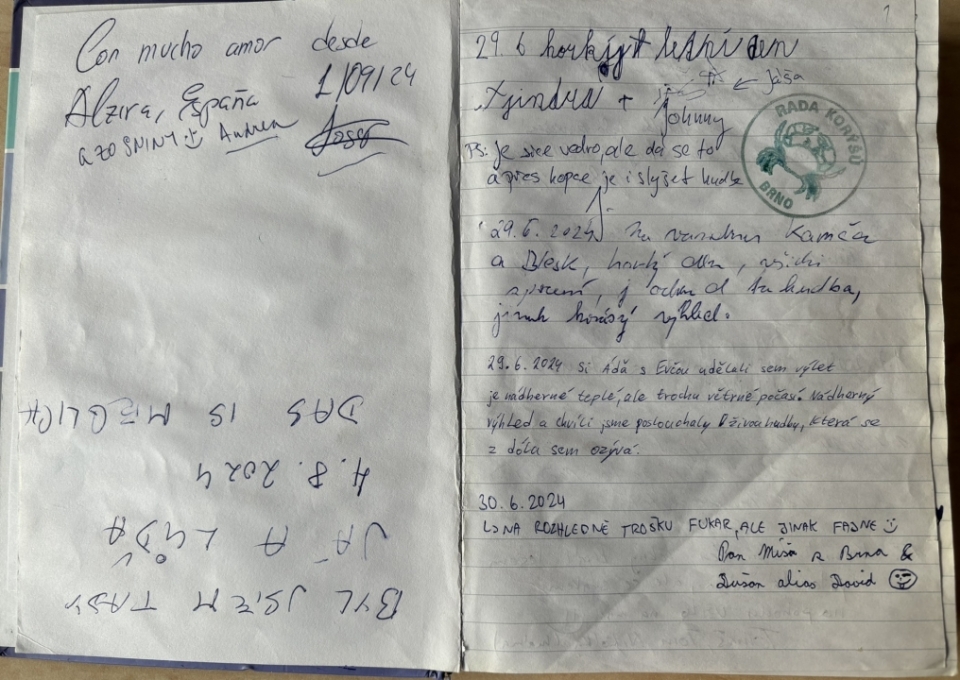 Con mucho amor desde
Alzira, España 1/09/24
a ZO SNINY :) Andrea
BYL JSEM TADY
JÁ A LŮĎA
4.8.2024
DAS IS MEGLICH
1
29.6 horký letní den
+ Jáša
Johnny
PS: je sice vedro, ale dá se to
a přes kopce je i slyšet hudba
RADA KORÝŠŮ
BRNO
29.6.2024 Na Kamča
a Blesk, horký den, všichni
hudba,
jinak krásný výhled.
29.6.2024 Si Áďa s Evčou udělali sem výlet
je nádherné teplé, ale trochu větrné počasí. Nádherný
výhled a chvíli jsme poslouchaly živou hudbu, která se
z dola sem ozývá.
30.6.2024
NA ROZHLEDNĚ TROŠKU FUKAR, ALE JINAK FAJNE :)
Pan Míša z Brna &
Dušan alias David